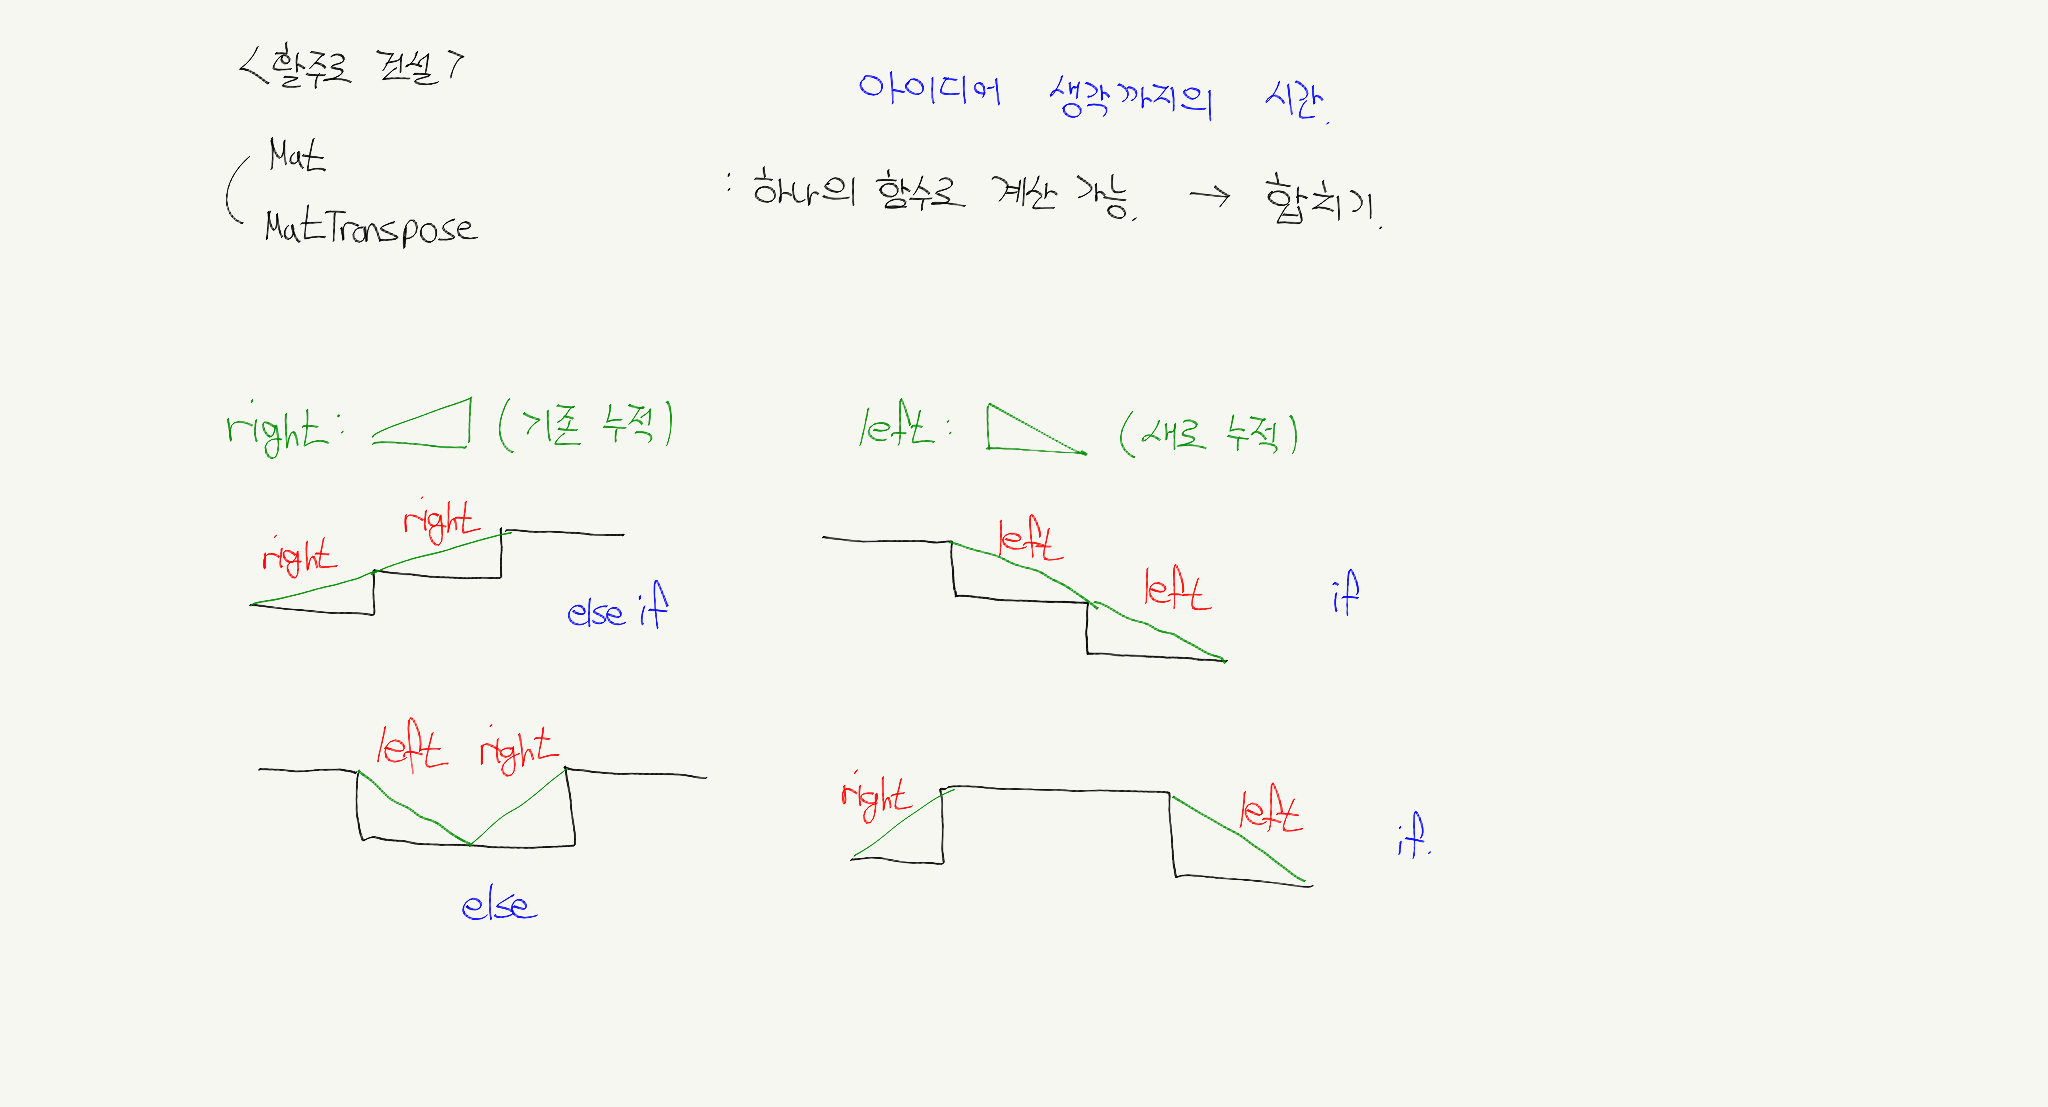 <활주로 건설>
아이디어 생각까지의 시간.
Mat
MatTranspose
: 하나의 함수로 계산 가능. → 합치기.
right: (기존 누적)
left: (새로 누적)
right right
else if
left left
if
left right
else
right left
if.